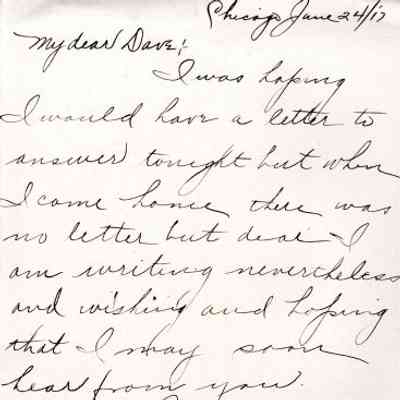 Chicago June 24/17
My dear Dave:
I was hoping
I would have a letter to
answer tonight but when
I came home there was
no letter but dear I
am writing nevertheless
and wishing and hoping
that I may soon
hear from you.